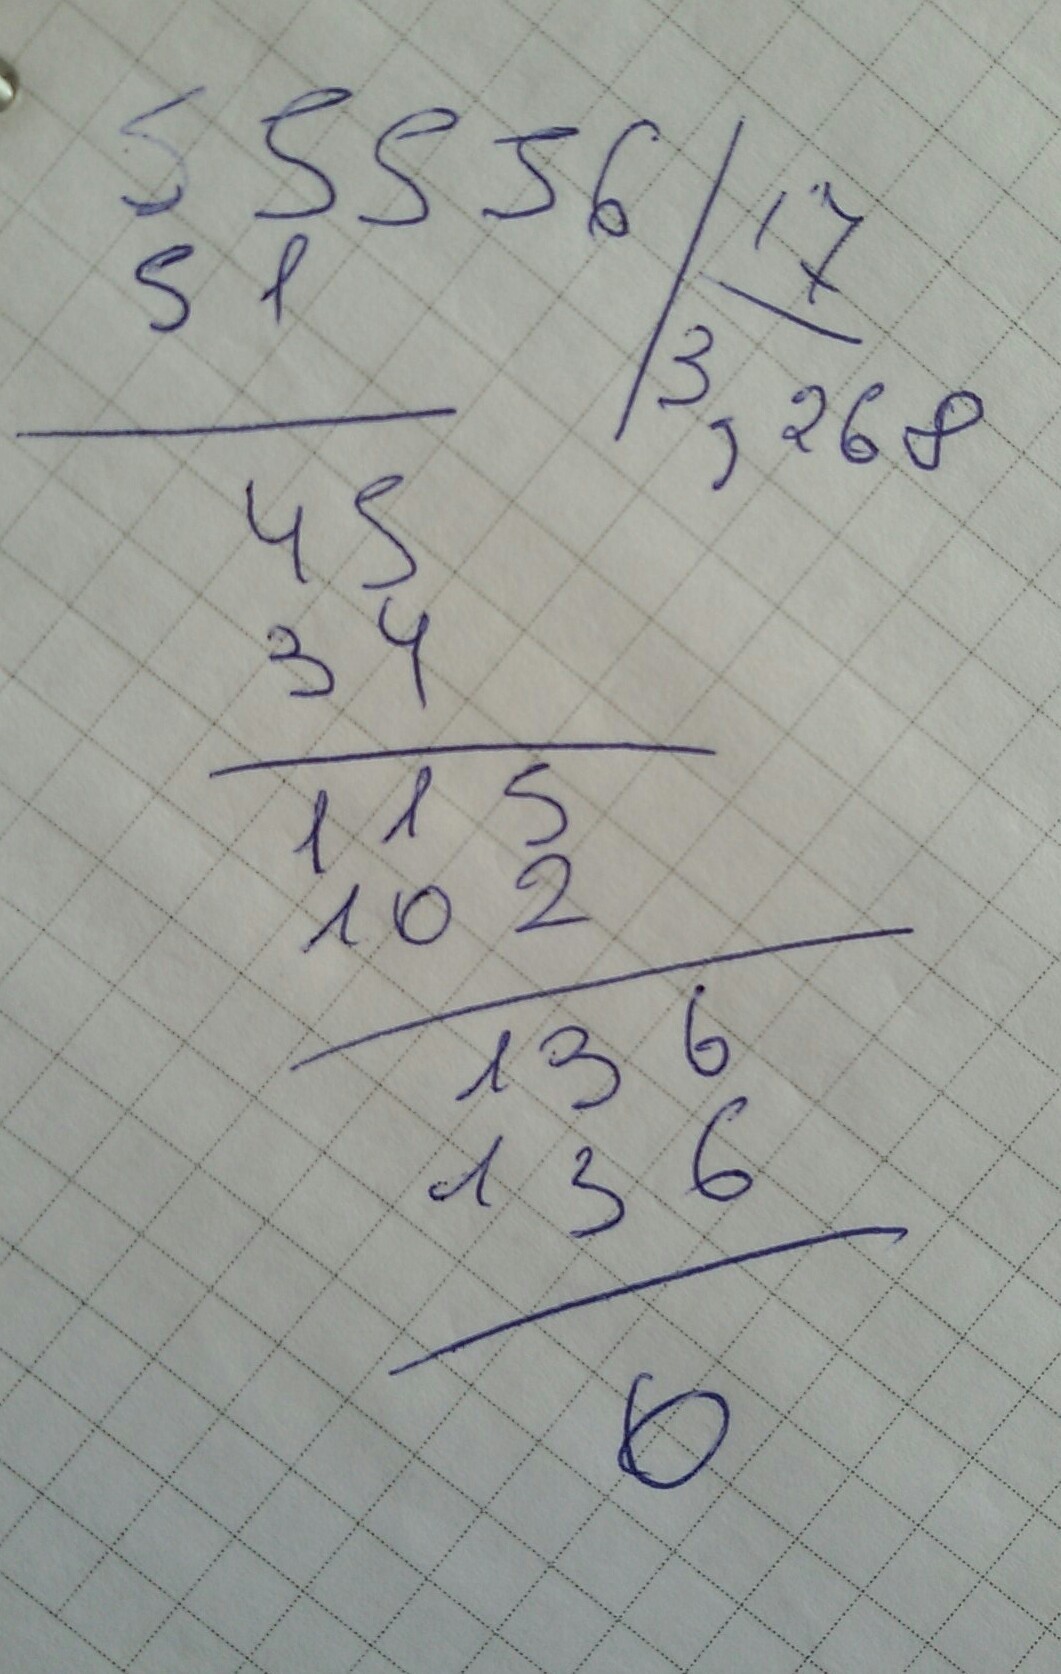 55556 17
51 3,268
45
34
115
102
136
136
0